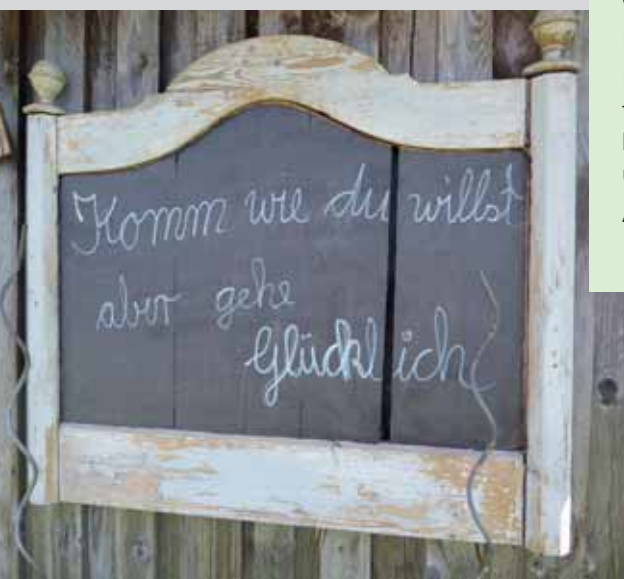 Komm wie du willst
aber gehe
Glücklich